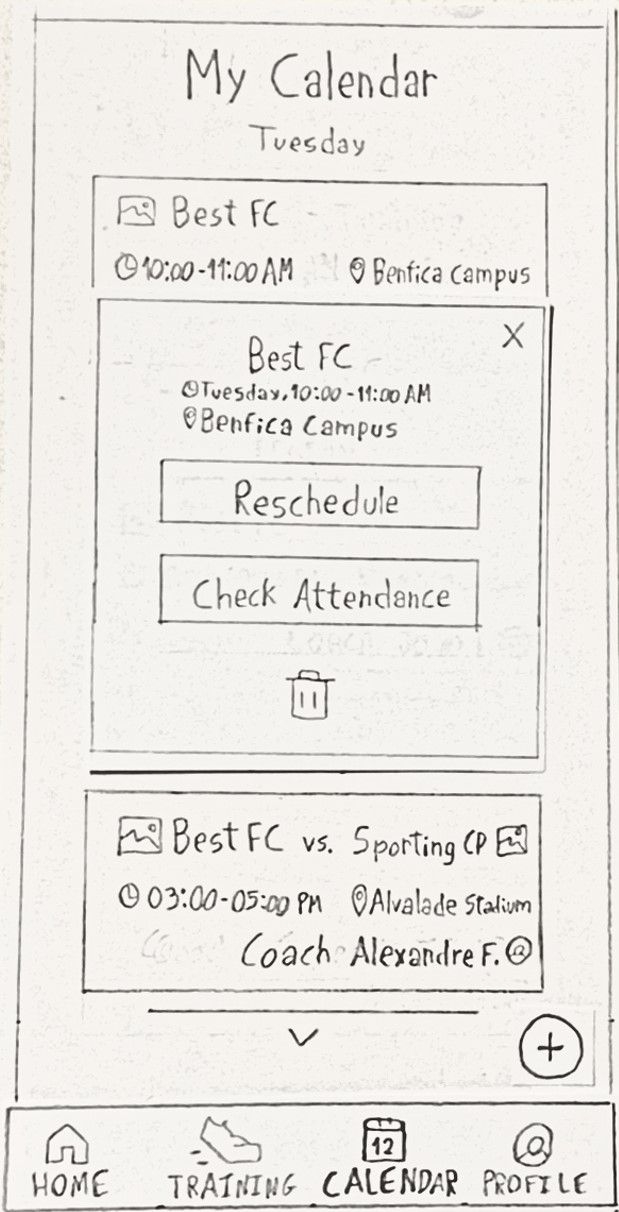 My Calendar
Tuesday
Best FC
10:00-11:00 AM Benfica Campus
X
Best FC
Tuesday, 10:00-11:00 AM
Benfica Campus
Reschedule
Check Attendance
Best FC vs. Sporting CP
03:00-05:00 PM Alvalade Stadium
Coach Alexandre F.
+
12
HOME TRAINING CALENDAR PROFILE